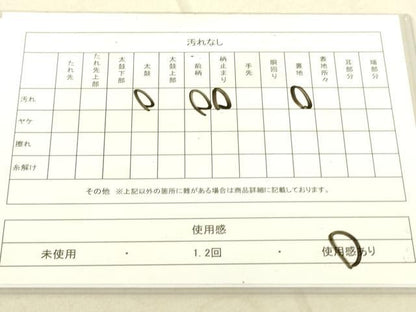 汚れなし
たれ先 たれ先上部 太鼓下部 太鼓 太鼓上部 前柄 納止まり 手先 胴回り 裏地 裏地所々 耳部分 端部分
汚れ
ヤケ
擦れ
糸解け
その他 ※上記以外の箇所に難がある場合は商品詳細に記載しております。
使用感
未使用 ・ 1.2回 ・ 使用感あり